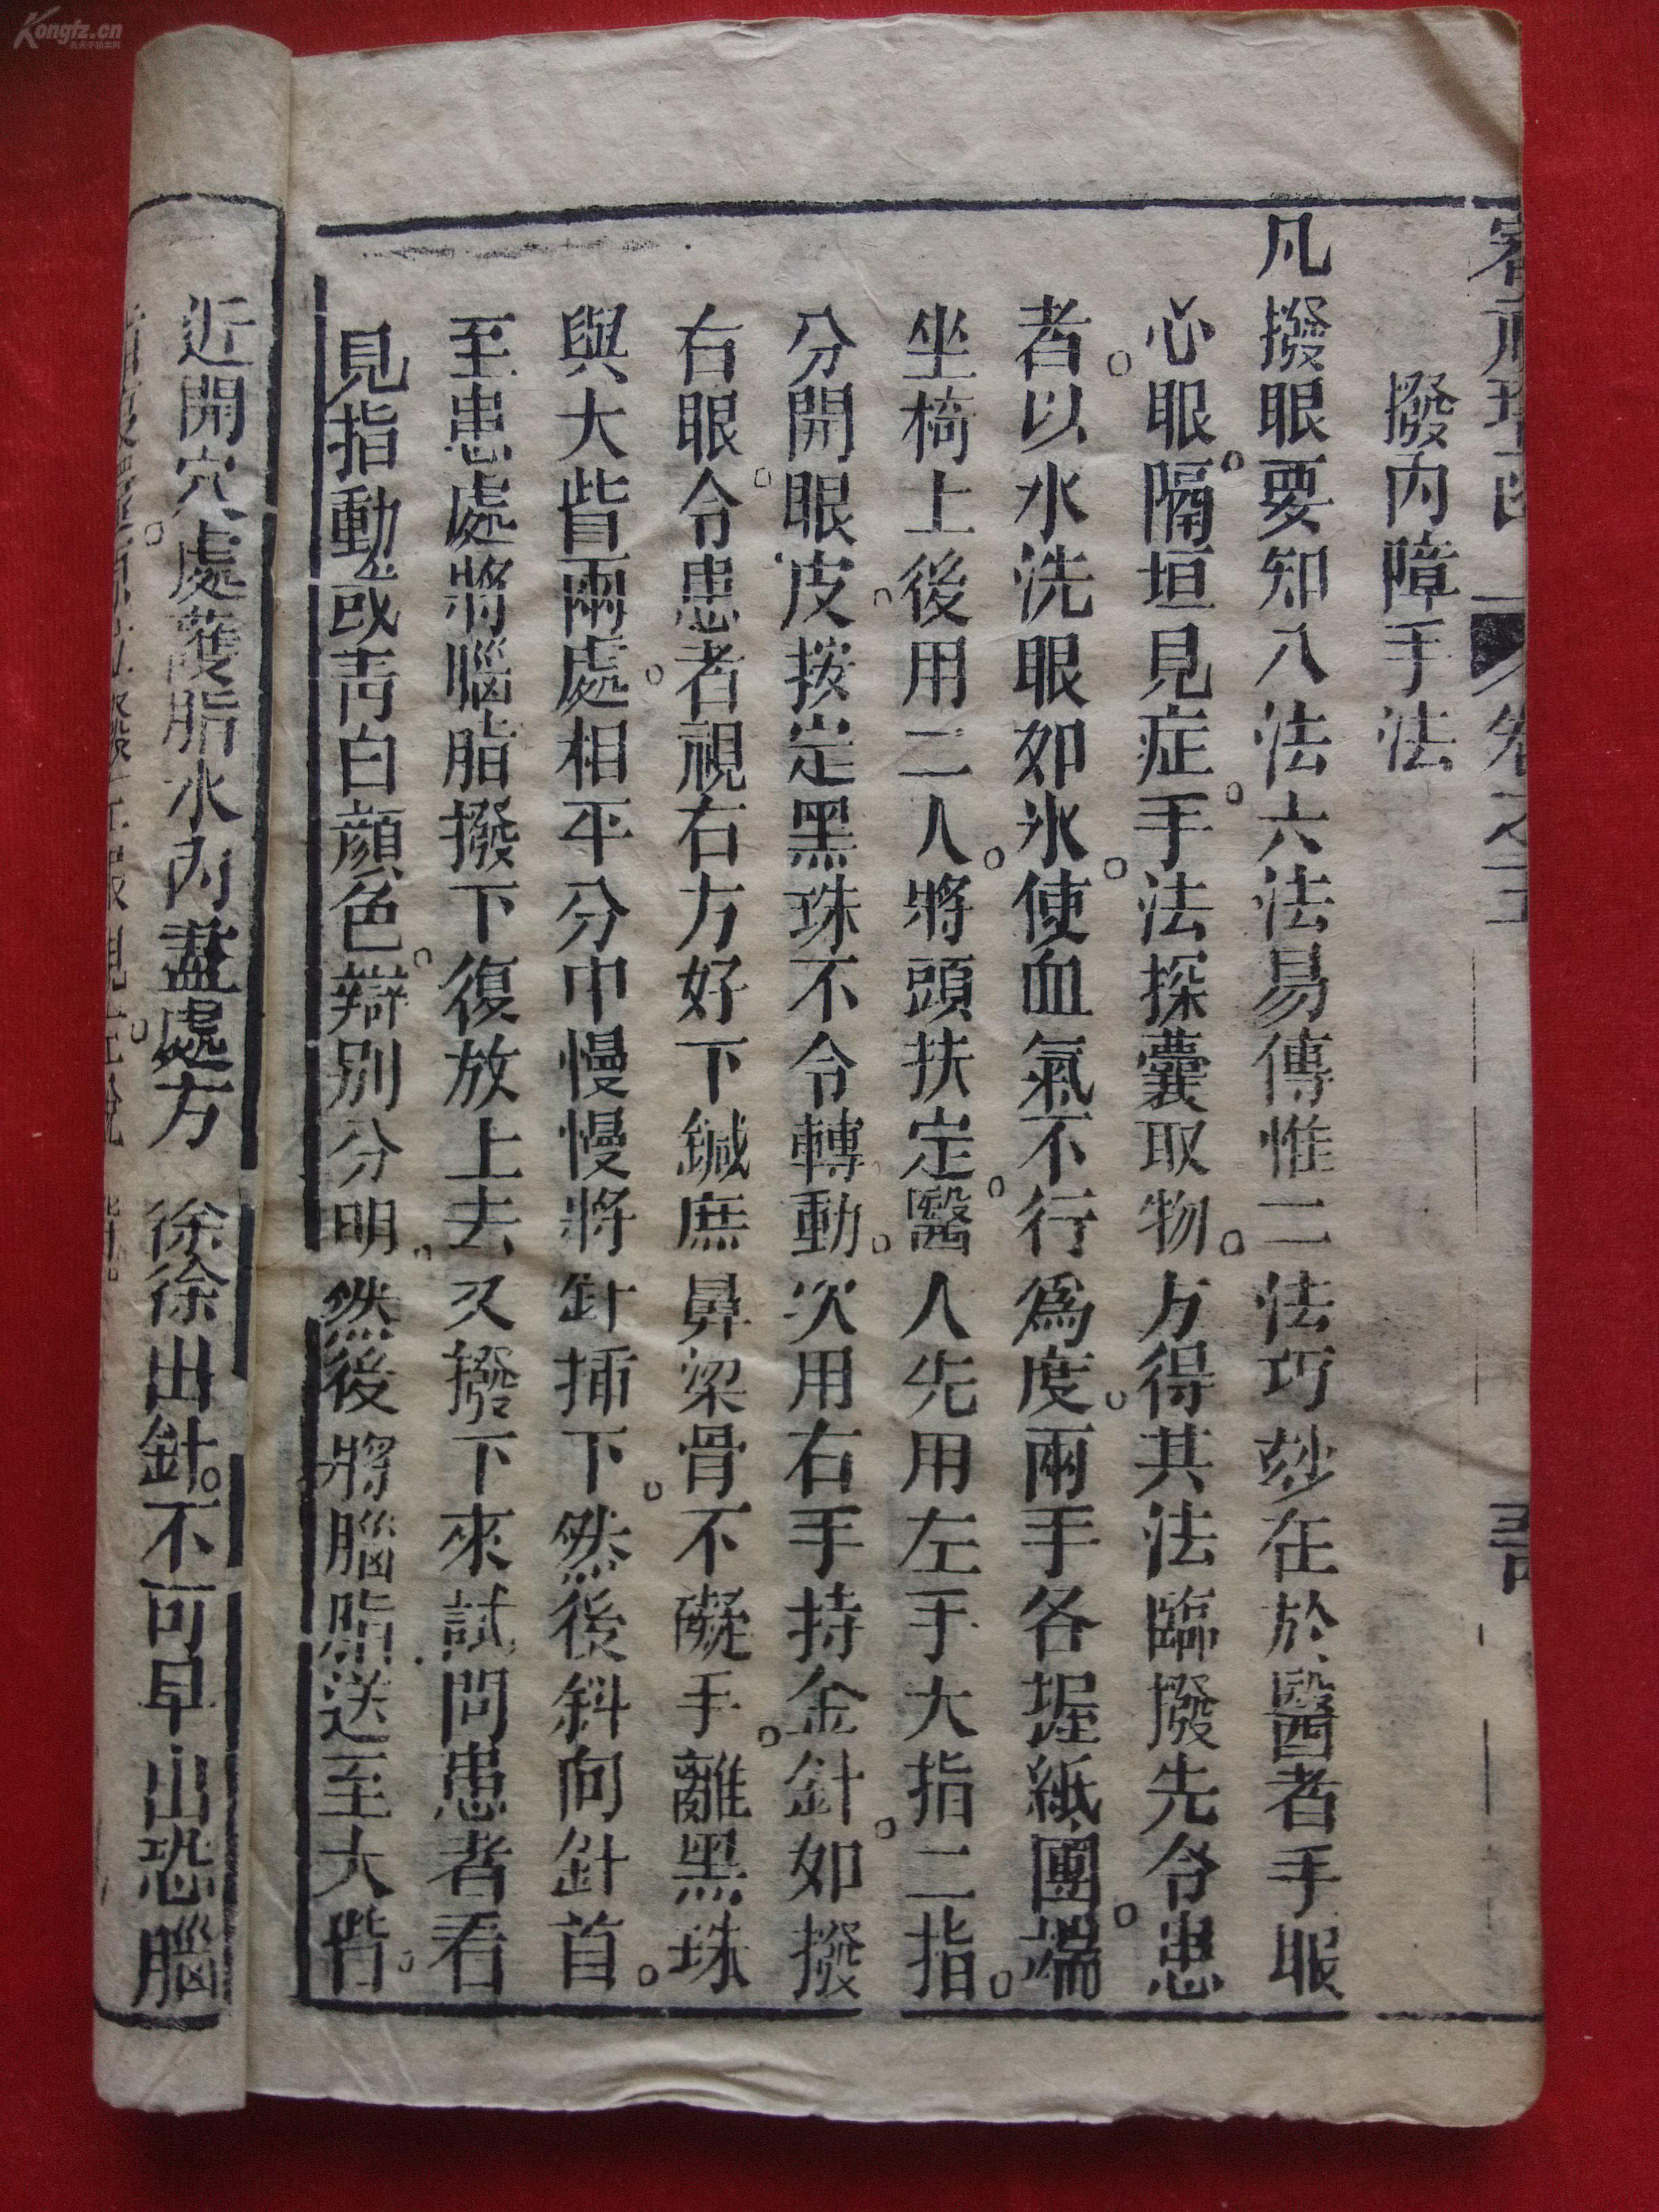 撥內障手法
凡撥眼要知八法六法易傳惟二法巧玅在於醫者手眼
心眼隔垣見症手法探囊取物方得其法臨撥先令患
者以水洗眼如氷使血氣不行為度兩手各握紙團端
坐椅上後用二人將頭扶定醫人先用左手大指二指
分開眼皮按定黑珠不令轉動次用右手持金針如撥
右眼令患者視右方好下鍼庶鼻梁骨不礙手離黑珠
與大眥兩處相平分中慢慢將針插下然後斜向針首
至患處將腦脂撥下復放上去又撥下來試問患者看
見指動或青白顔色辯別分明然後將腦脂送至大眥
近開穴處護脂水內盡處方徐徐出針不可早出恐腦
Kongfz.cn